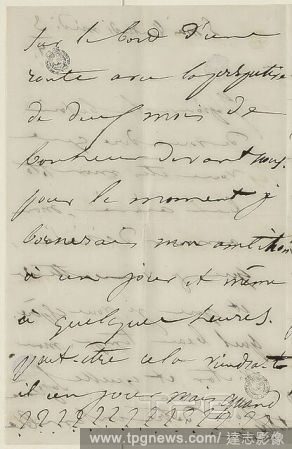 sur le bord d'une
route avec la perspective
de deux mois de
bonheur devant nous.
pour le moment je
bornerais mon ambition
à un jour et même
à quelques heures.
peut-être cela viendra-t-
il un jour mais quand
? ? ? ? ? ? ? ? ? ? ? ? ?
www.tpgnews.com / 達志影像